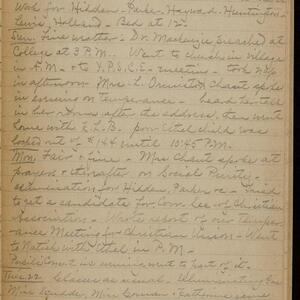 Work for Hidden - Parker - Hayward - Huntington -
Lewis, Holland - Bed at 12.
Sun. Fine weather - Dr. Mackenzie preached at
College at 3 P.M. Went to church in village
in A.M. & to Y.P.S.C.E. meeting - took nap
in afternoon - Mrs. L. Ormiston Chant spoke
in evening on temperance - heard her tell
in her after the address, then went
home with E.L.B. poor Ethel child was
locked out of #144 until 10:45 P.M.
Mon. Fair & fine - Mrs Chant spoke at
prayers & thereafter on Social Purity -
examination for Hidden, Parker &c - Tried
to get a candidate for Cor. Sec. of Christian
Association - Wrote report of our Temper-
ance Meeting for Christian Union - Went
to Natick with Ethel in P.M. -
in evening, went to part of it.
Tues. 22 Classes as usual -
Miss Scudder, Miss